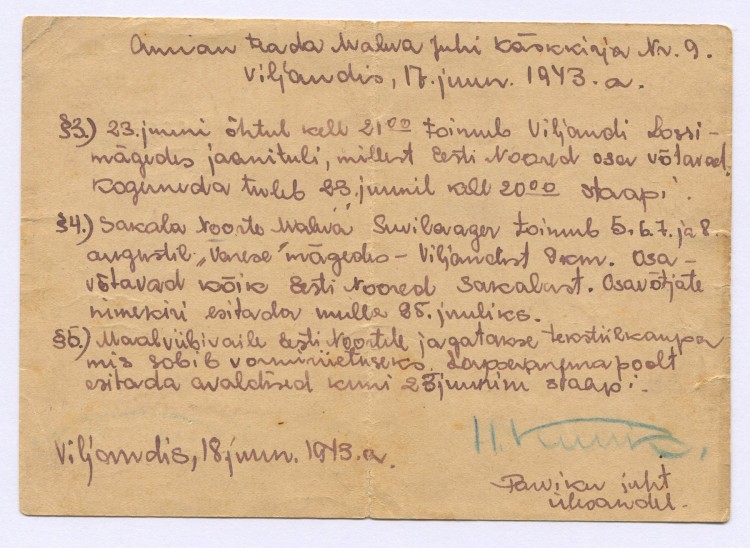 Annan teada Malva Juhi Käskkirja Nr. 9.
Viljandis, 17. juun. 1943. a.
§3.) 23. juuni õhtul kell 21⁰⁰ toimub Viljandi Lossi-
mägedes jaanituli, millest Eesti Noored osa võtavad.
Koguneda tuleb 23. juunil kell 20⁰⁰ staapi.
§4.) Sakala Noorte Malva Suvilaager toimub 5. 6. 7. ja 8.
augustil „Varese" mägedes - Viljandist 9 km. Osa-
võtavad kõik Eesti Noored Sakalast. Osavõtjate
nimekiri esitada mulle 25. juuliks.
§5.) Maalviibivaile Eesti Noortele jagatakse tekstiilkaupa
mis sobib vormiriietuseks. Lapsevanema poolt
esitada avaldised kuni 25 juunini staapi.
Viljandis, 18 juun. 1943. a.
Parviku juht
ülesandel.